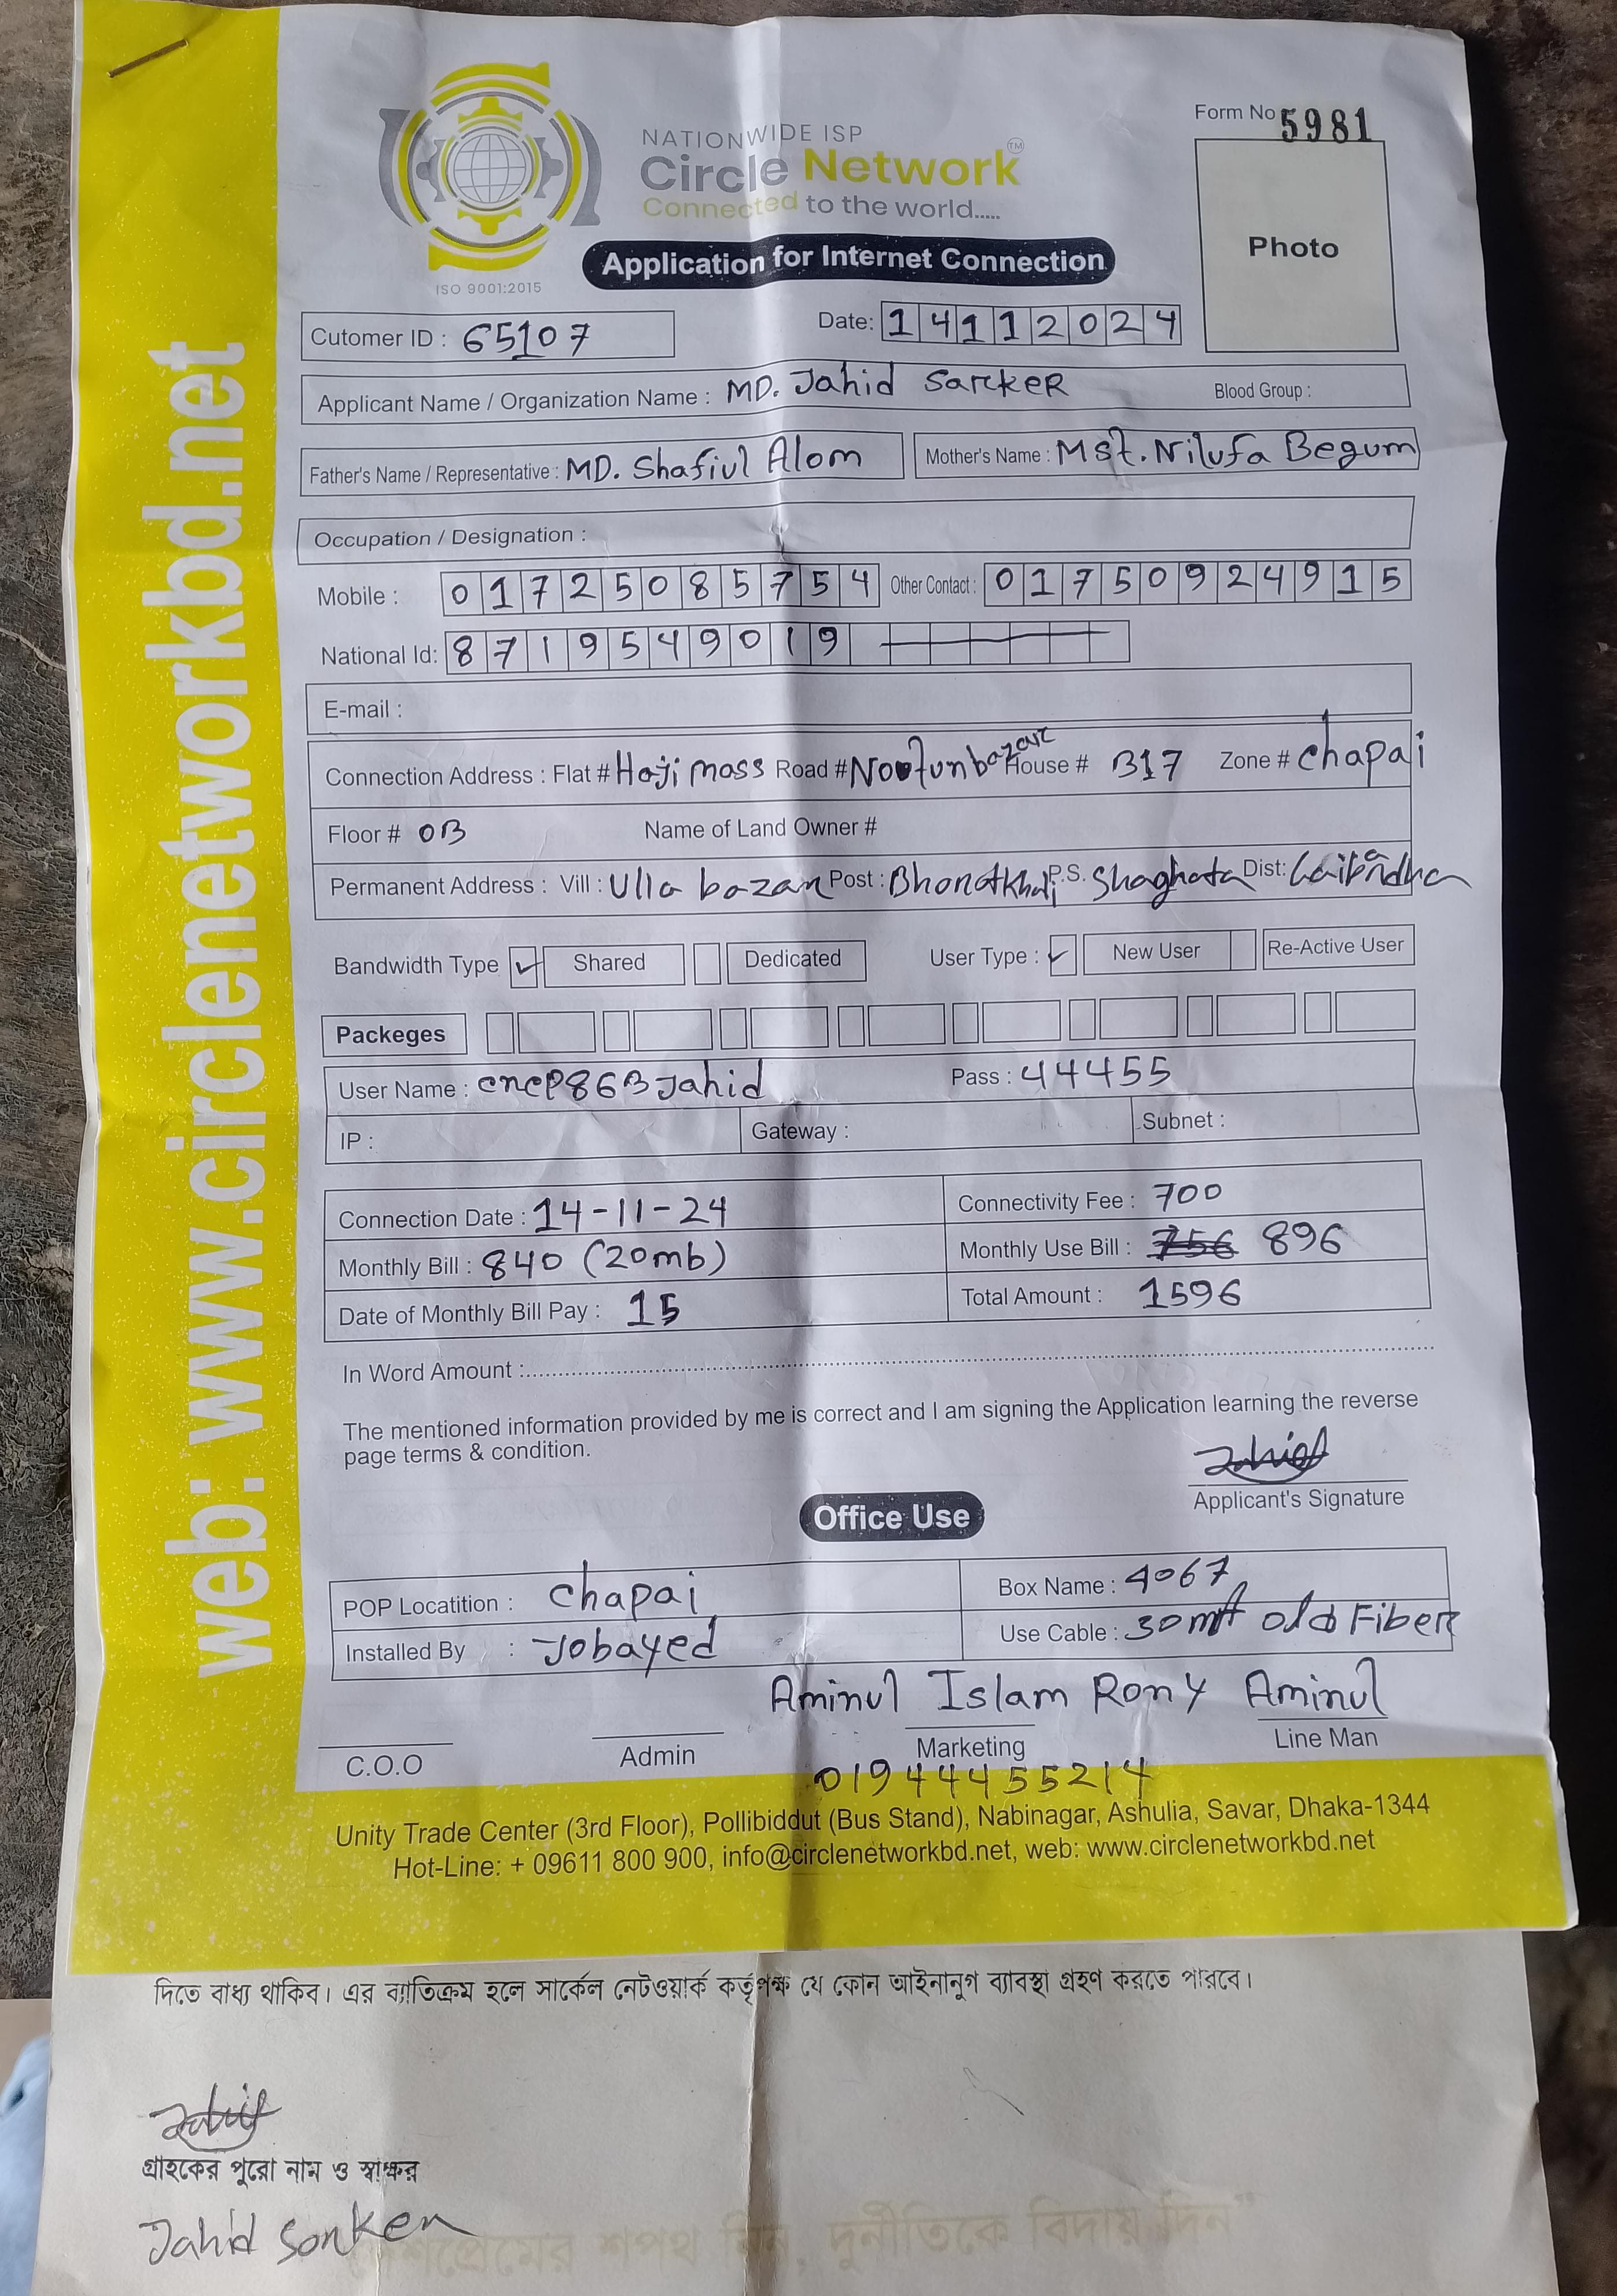 Form No 5981
NATIONWIDE ISP
Circle Network TM
Connected to the world.....
ISO 9001:2015
Application for Internet Connection
Photo
Cutomer ID : 65107
Date: 14112024
Applicant Name / Organization Name : MD. Jahid SarckeR Blood Group :
Father's Name / Representative : MD. Shafiul Alom Mother's Name : Mst. Nilufa Begum
Occupation / Designation :
Mobile : 01725085754 Other Contact : 01750924915
National Id: 8719549019
E-mail :
Connection Address : Flat # Haji moss Road # Nootunbazar House # B17 Zone # chapai
Floor # 0B Name of Land Owner #
Permanent Address : Vill : Ulla bazan Post : Bhonatkhali P.S. Shaghata Dist: Gaibandha
Bandwidth Type ✓ Shared Dedicated User Type : ✓ New User Re-Active User
Packeges
User Name : cncp86BJahid Pass : 44455
IP : Gateway : Subnet :
Connection Date : 14-11-24 Connectivity Fee : 700
Monthly Bill : 840 (20mb) Monthly Use Bill : 756 896
Date of Monthly Bill Pay : 15 Total Amount : 1596
In Word Amount :
The mentioned information provided by me is correct and I am signing the Application learning the reverse
page terms & condition.
Jahid
Applicant's Signature
Office Use
POP Locatition : chapai Box Name : 4067
Installed By : Jobayed Use Cable : 30 old FibeR
Aminul Islam Rony Aminul
C.O.O Admin Marketing Line Man
01944455214
Unity Trade Center (3rd Floor), Pollibiddut (Bus Stand), Nabinagar, Ashulia, Savar, Dhaka-1344
Hot-Line: + 09611 800 900, info@circlenetworkbd.net, web: www.circlenetworkbd.net
web: www.circlenetworkbd.net
দিতে বাধ্য থাকিব। এর ব্যাতিক্রম হলে সার্কেল নেটওয়ার্ক কর্তৃপক্ষ যে কোন আইনানুগ ব্যাবস্থা গ্রহণ করতে পারবে।
Jahid
গ্রাহকের পুরো নাম ও স্বাক্ষর
Jahid Sonken
শপ্রেমের শপথ নিন, দুর্নীতিকে বিদায় দিন"